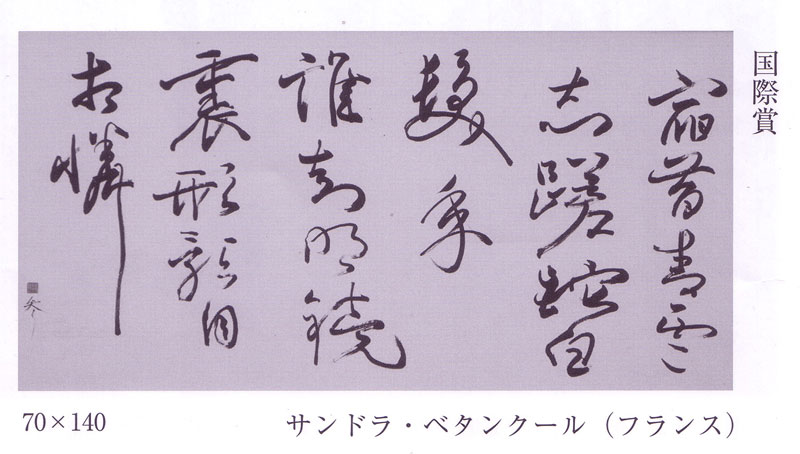 国際賞
宿昔青雲
志蹉跎白
髪年
誰知明鏡
裏形影自
相憐
70×140
サンドラ・ベタンクール（フランス）